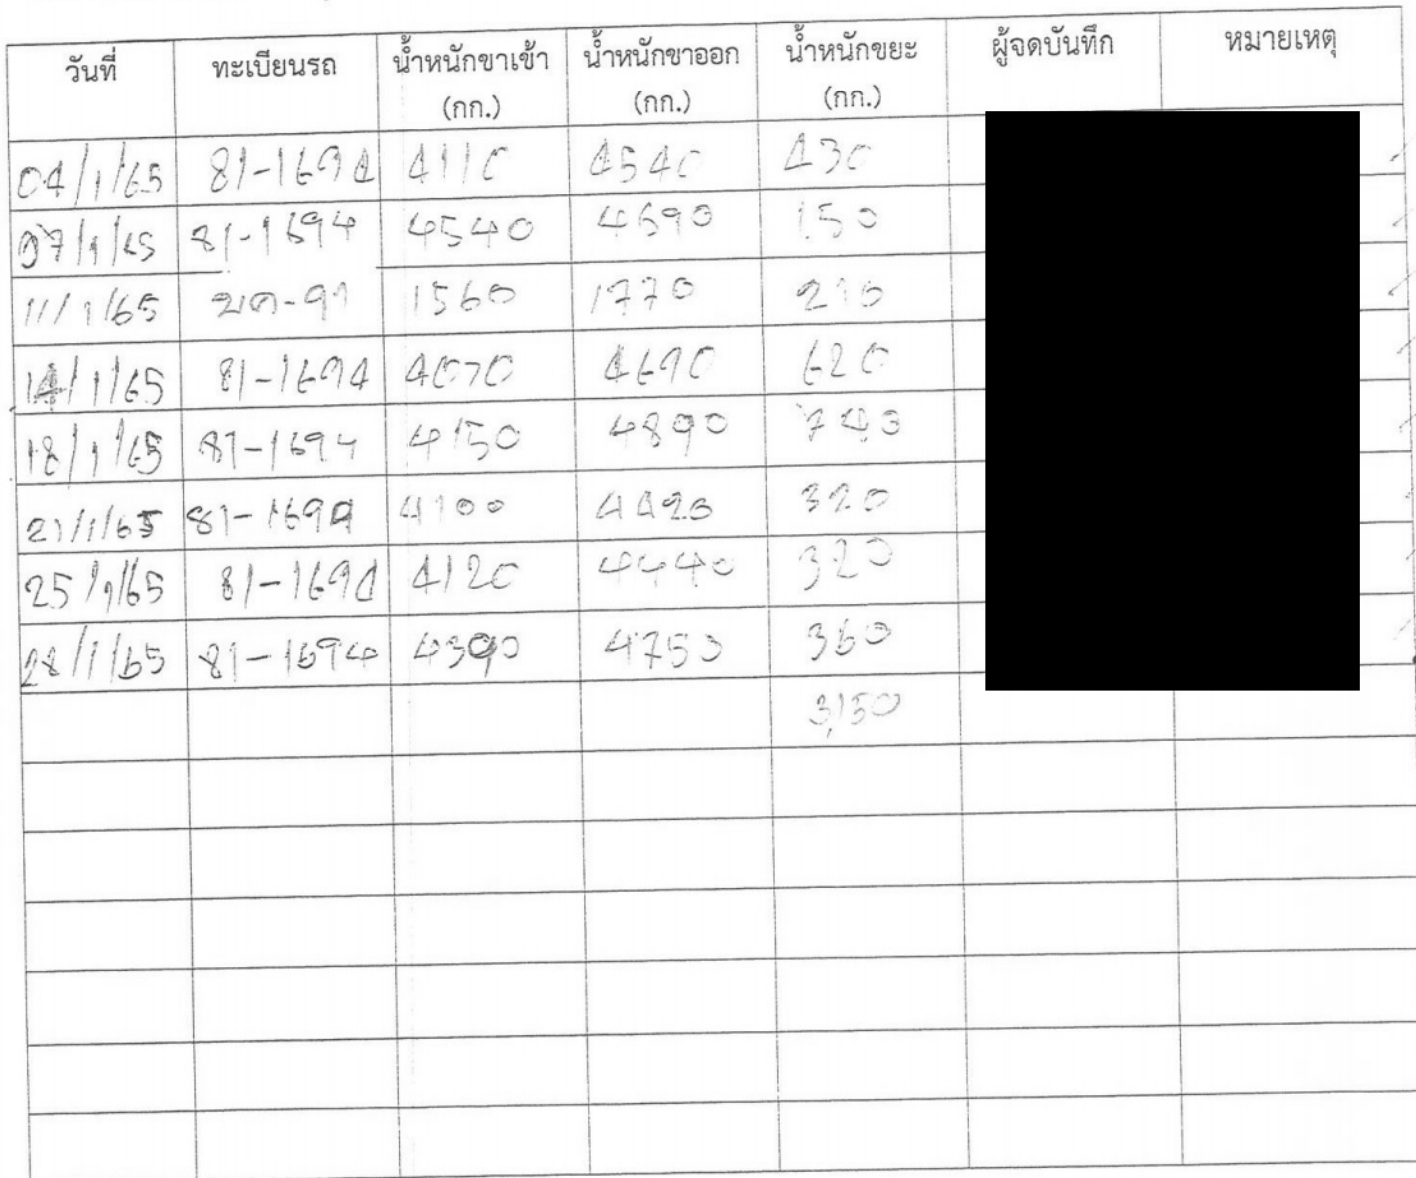 วันที่ ทะเบียนรถ น้ำหนักขาเข้า (กก.) น้ำหนักขาออก (กก.) น้ำหนักขยะ (กก.) ผู้จดบันทึก หมายเหตุ
04/1/65 81-1694 4110 4540 430
07/1/65 81-1694 4540 4690 150
11/1/65 1560 1770 210
14/1/65 81-1694 4070 4690 620
18/1/65 81-1694 4150 4890 740
21/1/65 81-1694 4100 4420 320
25/1/65 81-1694 4120 4440 320
28/1/65 81-1694 4390 4750 360
3,150